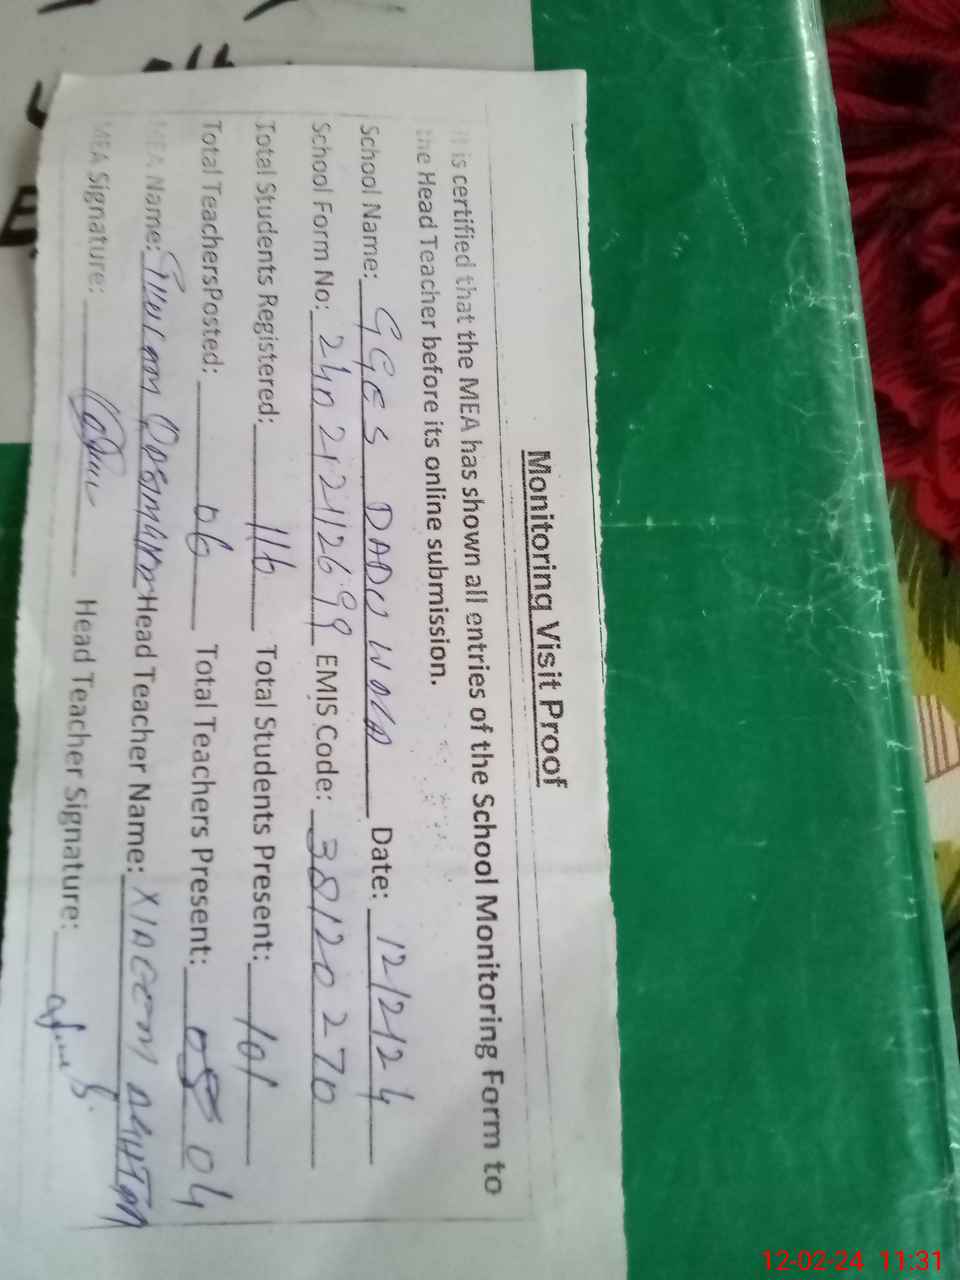 Monitoring Visit Proof
It is certified that the MEA has shown all entries of the School Monitoring Form to
the Head Teacher before its online submission.
School Name: GGES DADU WALA Date: 12/2/24
School Form No: EMIS Code: 38120270
Total Students Registered: 116 Total Students Present: 101
Total TeachersPosted: 06 Total Teachers Present: 04
MEA Name: Head Teacher Name:
MEA Signature: Head Teacher Signature:
12-02-24 11:31